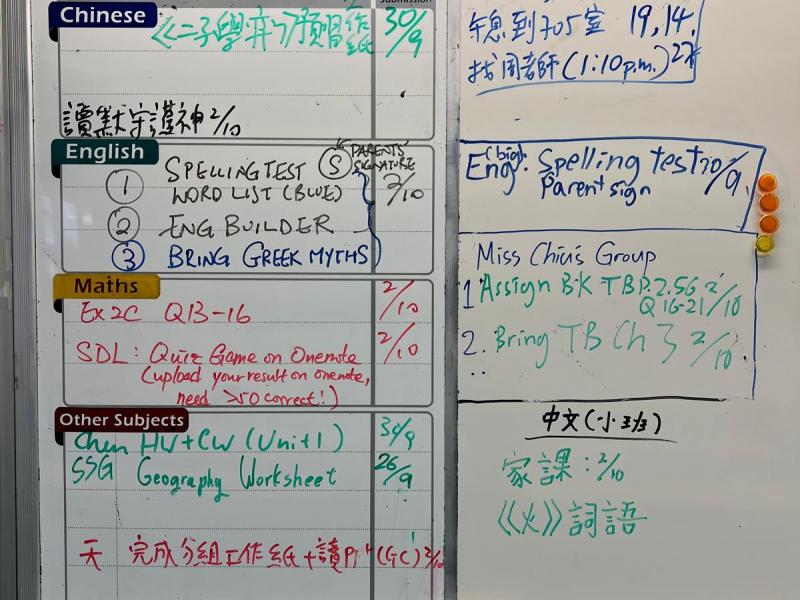 Submission
Chinese
《二子學弈》預習給紙 30/9
讀默守護神 2/10
English
① SPELLING TEST Ⓢ PARENTS' SIGNATURE
WORD LIST (BLUE) 2/10
② ENG BUILDER
③ BRING GREEK MYTHS
Maths
Ex2C Q13-16 2/10
SDL: Quiz Game on Onenote 2/10
(upload your result on onenote,
need >50 correct!)
Other Subjects
Chem HW+CW (Unit 1) 30/9
SSG Geography Worksheet 26/9
天 完成分組工作紙+讀P (GC) 2/10
息到705室 19, 14,
找周老師 (1:10 p.m.) 27
Eng (big). Spelling test 9
Parent sign
Miss Chiu's Group
1 Assign BK TB P.2.56 2/10
Q 16-21
2. Bring TB Ch 3 2/10
中文(小 3/3)
家課: 2/10
《火》詞語